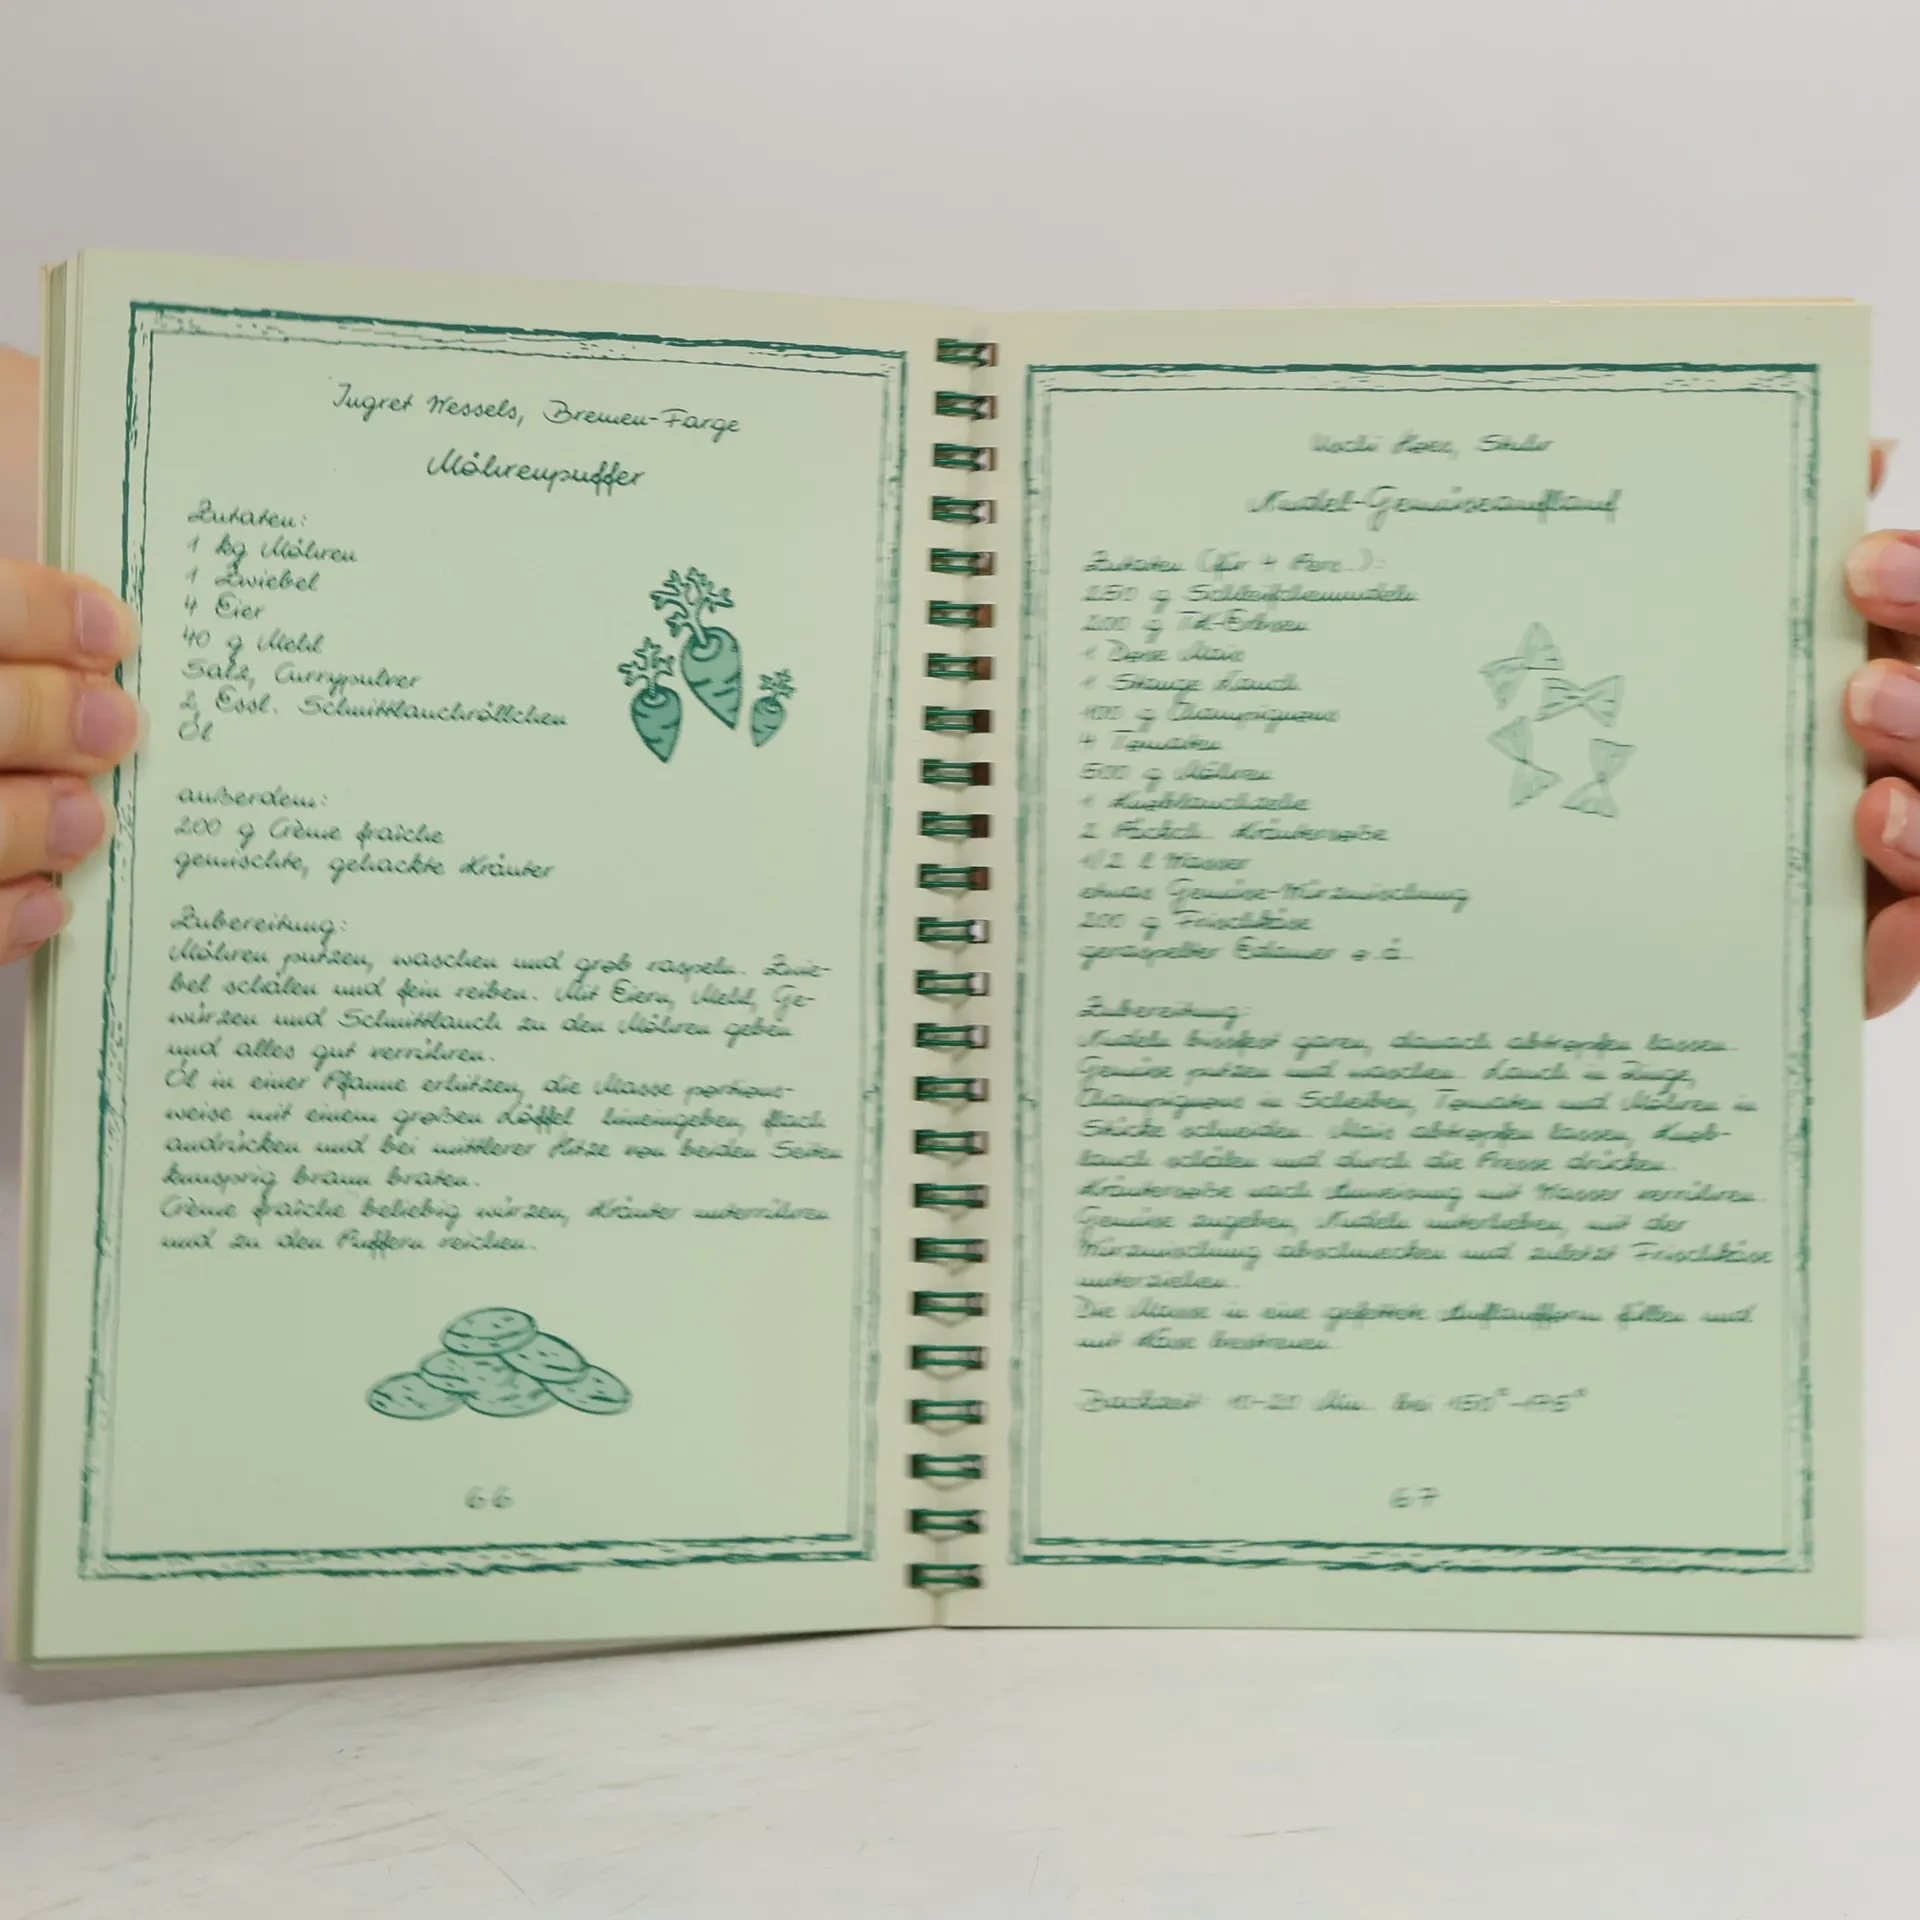 Ingret Wessels, Bremen-Farge
Möhrenpuffer
Zutaten:
1 kg Möhren
1 Zwiebel
4 Eier
40 g Mehl
Salz, Currypulver
2 Essl. Schnittlauchröllchen
Öl
außerdem:
200 g Crème fraîche
gemischte, gehackte Kräuter
Zubereitung:
Möhren putzen, waschen und grob raspeln. Zwie-
bel schälen und fein reiben. Mit Eiern, Mehl, Ge-
würzen und Schnittlauch zu den Möhren geben
und alles gut verrühren.
Öl in einer Pfanne erhitzen, die Masse portions-
weise mit einem großen Löffel hineingeben, flach
andrücken und bei mittlerer Hitze von beiden Seiten
knusprig braun braten.
Crème fraîche beliebig würzen, Kräuter unterrühren
und zu den Puffern reichen.
66
Stuhr
Nudel-Gemüseauflauf
Zutaten (für 4 Pers.):
250 g Schleifchennudeln
200 g TK-Erbsen
1 Dose Mais
1 Stange Lauch
100 g Champignons
4 Tomaten
500 g Möhren
1 Knoblauchzehe
2 Päckch. Kräutersoße
1/2 l Wasser
etwas Gemüse-Würzmischung
200 g Frischkäse
geraspelter Edamer o.ä.
Zubereitung:
Nudeln bissfest garen, danach abtropfen lassen.
Gemüse putzen und waschen. Lauch in Ringe,
Champignons in Scheiben, Tomaten und Möhren in
Stücke schneiden. Mais abtropfen lassen, Knob-
lauch schälen und durch die Presse drücken.
Kräutersoße nach Anweisung mit Wasser verrühren.
Gemüse zugeben, Nudeln unterheben, mit der
Würzmischung abschmecken und zuletzt Frischkäse
unterziehen.
Die Masse in eine gefettete Auflaufform füllen und
mit Käse bestreuen.
Backzeit: Min. bei 150°-175°
67